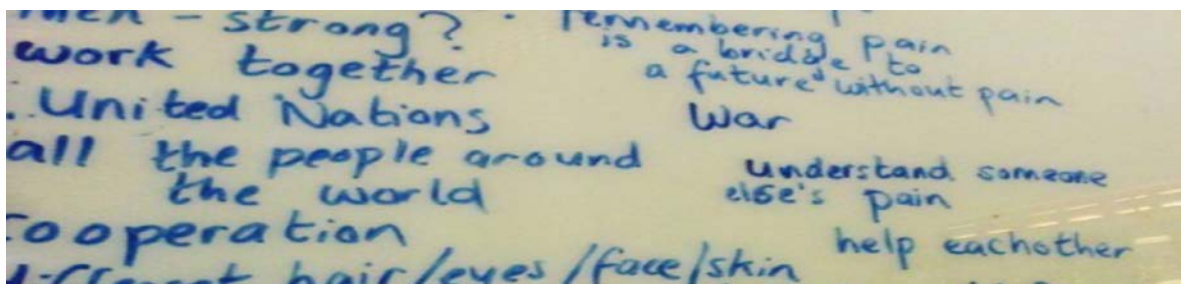 men - strong?
work together
United Nations
all the people around
the world
Cooperation
different hair/eyes/face/skin
remembering pain
is a bridge to
a future without pain
War
understand someone
else's pain
help eachother